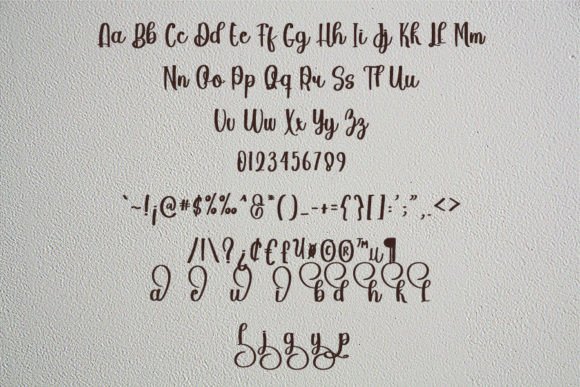 Aa Bb Cc Dd Ee Ff Gg Hh Ii Jj Kk Ll Mm
Nn Oo Pp Qq Rr Ss Tt Uu
Vv Ww Xx Yy Zz
0123456789
`~!¡@#$%‰^&*()_-+={}[]:';",.<>
/|\?¿¢€£¥¤©®™µ¶
a e u i b d h k l
j g y p